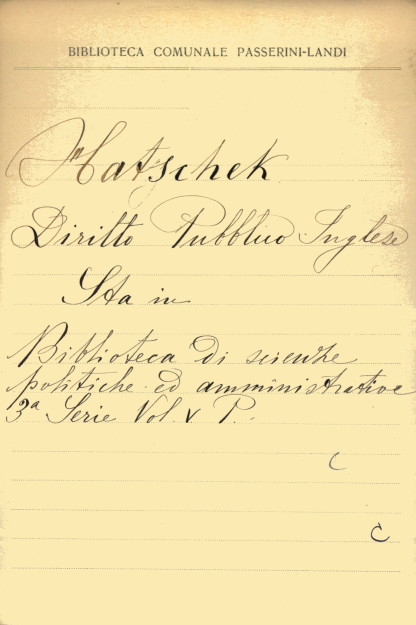 BIBLIOTECA COMUNALE PASSERINI-LANDI
Hatschek
Diritto Pubblico Inglese
Sta in
Biblioteca di scienze
politiche ed amministrative
3ª Serie Vol. V P.
C
C